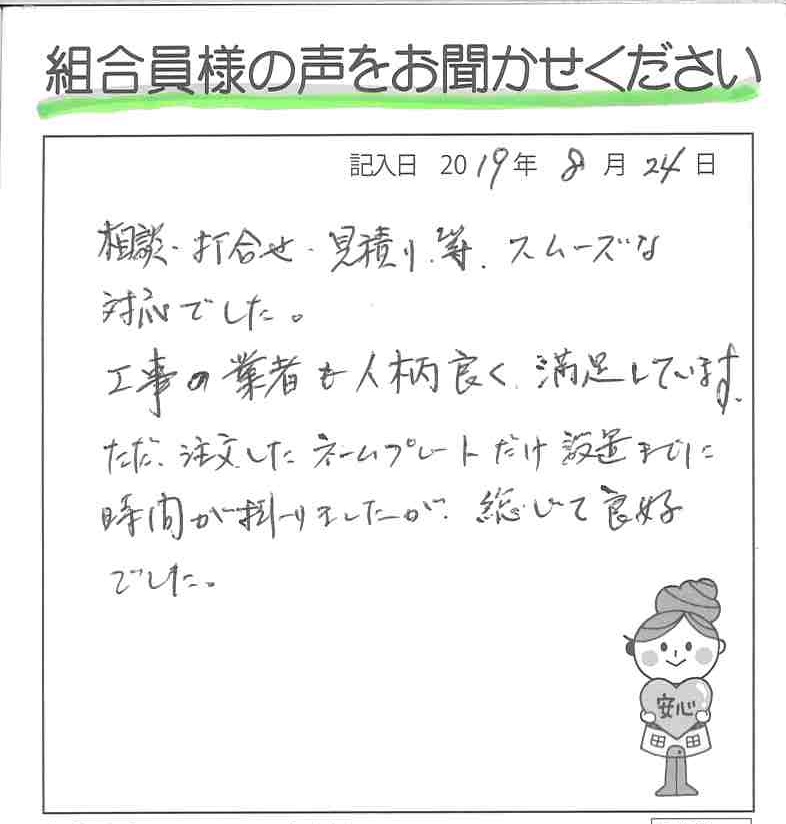 組合員様の声をお聞かせください
記入日 2019年 8月 24日
相談・打合せ・見積り、等、スムーズな
対応でした。
工事の業者も人柄良く、満足しています。
ただ、注文したネームプレートだけ設置までに
時間が掛りましたが、総じて良好
でした。
安心